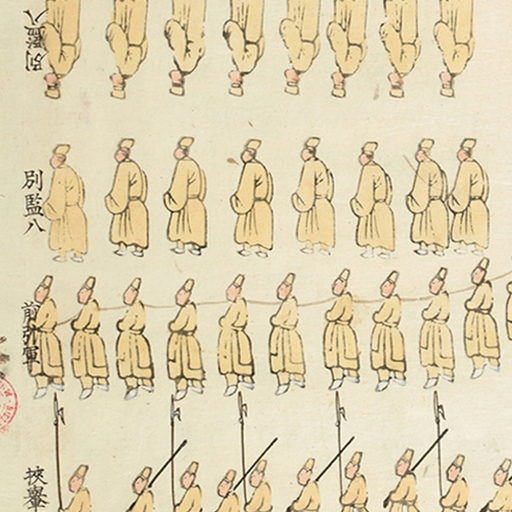 別監八
別監八
前引軍
挾輦軍